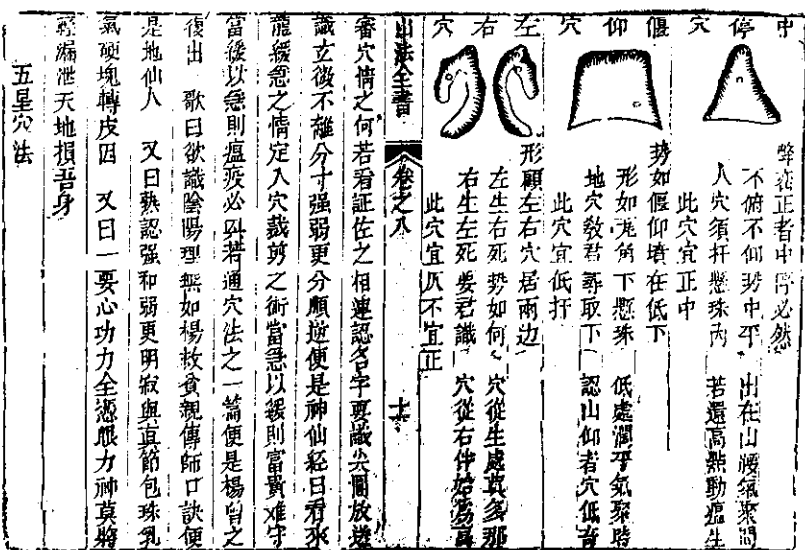 中停穴
弊在正者中停必然
不俯不仰势中平 出在山腰氣聚間
人穴須扦懸珠内 若還高點動瘟生
此穴宜正中
偃仰穴
势如偃仰墳在低下
形如龙角下懸珠 低處濶平氣聚時
地穴教君尋取下 認山仰者穴低奇
此穴宜低扦
左右穴
形顧左右穴居兩边
左生右死势如何 穴從生處真多那
右生左死要君識 穴從右伴始為真
此穴宜仄不宜正
山法全書 卷之八 十六
審穴情之何若看証佐之相連認名字要識尖圓放送
識立微不離分寸强弱更分顺逆便是神仙經曰看來
龍緩急之情定入穴裁剪之術當急以緩則富貴难守
當緩以急則瘟疫必興若通穴法之一篇便是楊曾之
復出 歌曰欲識陰陽理無如楊救貧親傳師口訣便
是地仙人 又曰熟認强和弱更明寂與直節包珠乳
氣硬塊轉皮因 又曰一要心功力全憑眼力神莫將
輕漏泄天地損吾身
五星穴法